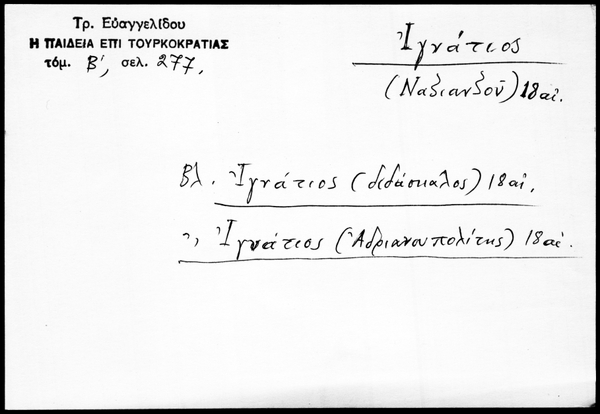 Τρ. Εὐαγγελίδου
Η ΠΑΙΔΕΙΑ ΕΠΙ ΤΟΥΡΚΟΚΡΑΤΙΑΣ
τόμ. Β', σελ. 277.
Ἰγνάτιος
(Ναζιανζοῦ) 18 αἰ.
Βλ. Ἰγνάτιος (διδάσκαλος) 18 αἰ.
〃 Ἰγνάτιος (Ἀδριανουπολίτης) 18 αἰ.